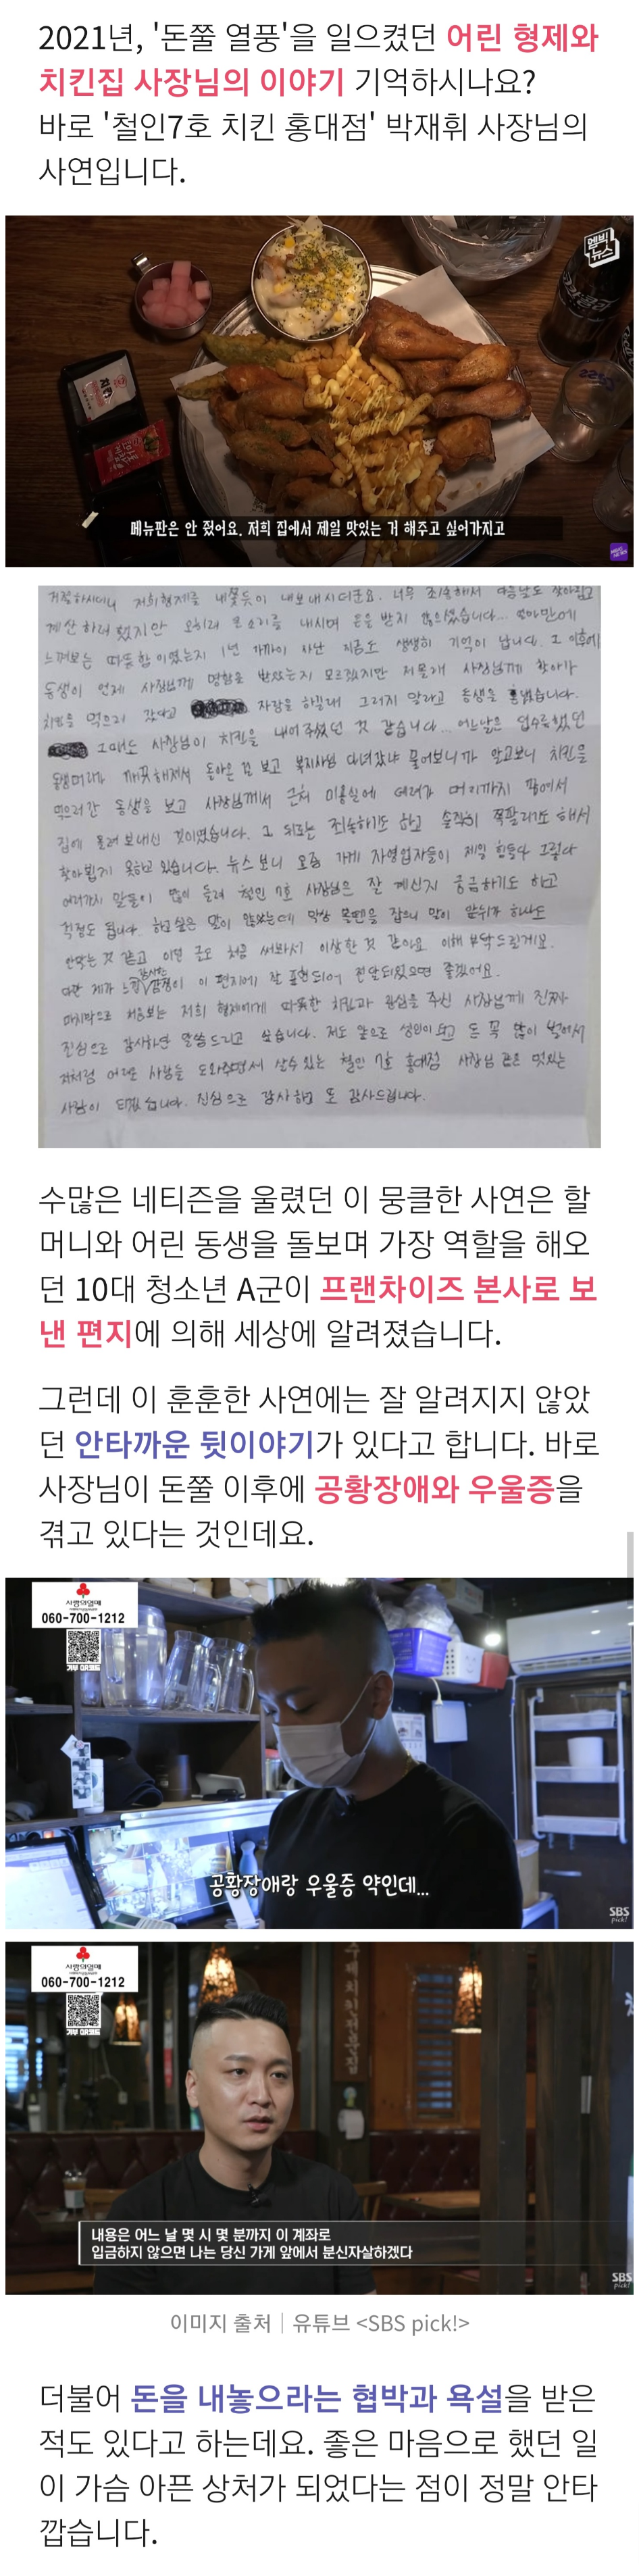 2021년, '돈쭐 열풍'을 일으켰던 어린 형제와
치킨집 사장님의 이야기 기억하시나요?
바로 '철인7호 치킨 홍대점' 박재휘 사장님의
사연입니다.
엠빅
뉴스
메뉴판은 안 줬어요. 저희 집에서 제일 맛있는 거 해주고 싶어가지고
거절하시더니 저희 형제를 내쫓듯이 내보내시더군요. 너무 죄송해서 다음날도 찾아뵙고
계산하려 했지만 오히려 큰 소리를 내시며 돈을 받지 않으셨습니다... 얼마만에
느껴보는 따듯함이었는지 1년 가까이 지난 지금도 생생히 기억이 납니다. 그 이후에
동생이 언제 사장님께 명함을 받았는지 모르겠지만 저 몰래 사장님께 찾아가
치킨을 먹으러 갔다고 자랑을 하길래 그러지 말라고 동생을 혼냈습니다.
그때도 사장님이 치킨을 내어주셨던 것 같습니다... 어느날은 덥수룩했던
동생머리가 깨끗해져서 돌아온 걸 보고 복지사님 다녀갔냐 물어보니까 알고보니 치킨을
먹으러 간 동생을 보고 사장님께서 근처 미용실에 데려가 머리까지 깎여서
집에 돌려 보내신 것이었습니다. 그 뒤로는 죄송하기도 하고 솔직히 쪽팔리기도 해서
찾아뵙지 못하고 있습니다. 뉴스 보니 요즘 가게 자영업자들이 제일 힘들다 그렇다
여러가지 말들이 많이 들려 철인 7호 사장님은 잘 계신지 궁금하기도 하고
걱정도 됩니다. 하고 싶은 말이 많았는데 막상 볼펜을 잡으니 말이 앞뒤가 하나도
안맞는 것 같고 이런 글도 처음 써봐서 이상한 것 같아요. 이해 부탁드릴게요.
다만 제가 느낀 감사한 감정이 이 편지에 잘 표현되어 전달되었으면 좋겠어요.
마지막으로 처음보는 저희 형제에게 따뜻한 치킨과 관심을 주신 사장님께 진짜
진심으로 감사하단 말씀 드리고 싶습니다. 저도 앞으로 성인이 되고 돈 꼭 많이 벌어서
저처럼 어려운 사람들 도와주면서 살수 있는 철인 7호 홍대점 사장님 같은 멋있는
사람이 되겠습니다. 진심으로 감사하고 또 감사드립니다.
수많은 네티즌을 울렸던 이 뭉클한 사연은 할
머니와 어린 동생을 돌보며 가장 역할을 해오
던 10대 청소년 A군이 프랜차이즈 본사로 보
낸 편지에 의해 세상에 알려졌습니다.
그런데 이 훈훈한 사연에는 잘 알려지지 않았
던 안타까운 뒷이야기가 있다고 합니다. 바로
사장님이 돈쭐 이후에 공황장애와 우울증을
겪고 있다는 것인데요.
사랑의열매
060-700-1212
기부 QR코드
공황장애랑 우울증 약인데...
SBS
pick!
사랑의열매
060-700-1212
기부 QR코드
내용은 어느 날 몇 시 몇 분까지 이 계좌로
입금하지 않으면 나는 당신 가게 앞에서 분신자살하겠다
SBS
pick!
이미지 출처｜유튜브 <SBS pick!>
더불어 돈을 내놓으라는 협박과 욕설을 받은
적도 있다고 하는데요. 좋은 마음으로 했던 일
이 가슴 아픈 상처가 되었다는 점이 정말 안타
깝습니다.